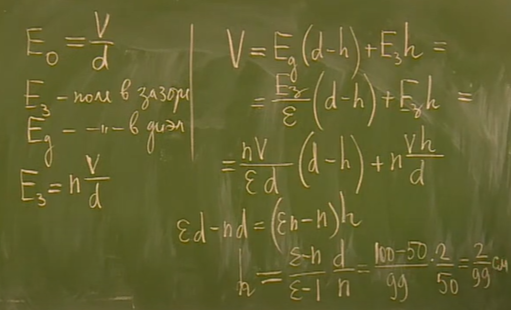 E₀ = V/d
E₃ - поле в зазоре
Eg - -"- в диэл
E₃ = n V/d
V = Eg (d-h) + E₃h =
= E₃/ε (d-h) + E₃h =
= nV/εd (d-h) + n Vh/d
εd-nd = (εn-n)h
h = ε-n/ε-1 d/n = 100-50/99 · 2/50 = 2/99 см